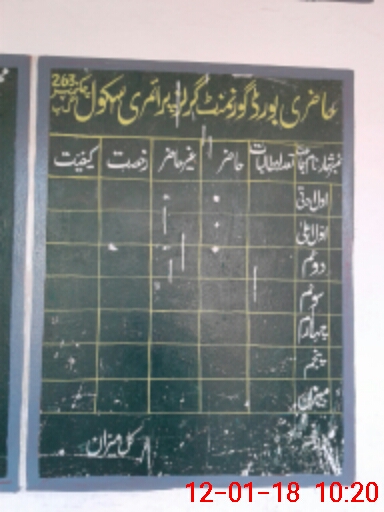 حاضری بورڈ گورنمنٹ گرلز پرائمری سکول چک نمبر 263
نمبر شمار نام جماعت تعداد طالبات حاضر غیر حاضر رخصت کیفیت
اول ادنیٰ
اول اعلیٰ
دوئم
سوئم
چہارم
پنجم
میزان
کل میزان
12-01-18 10:20